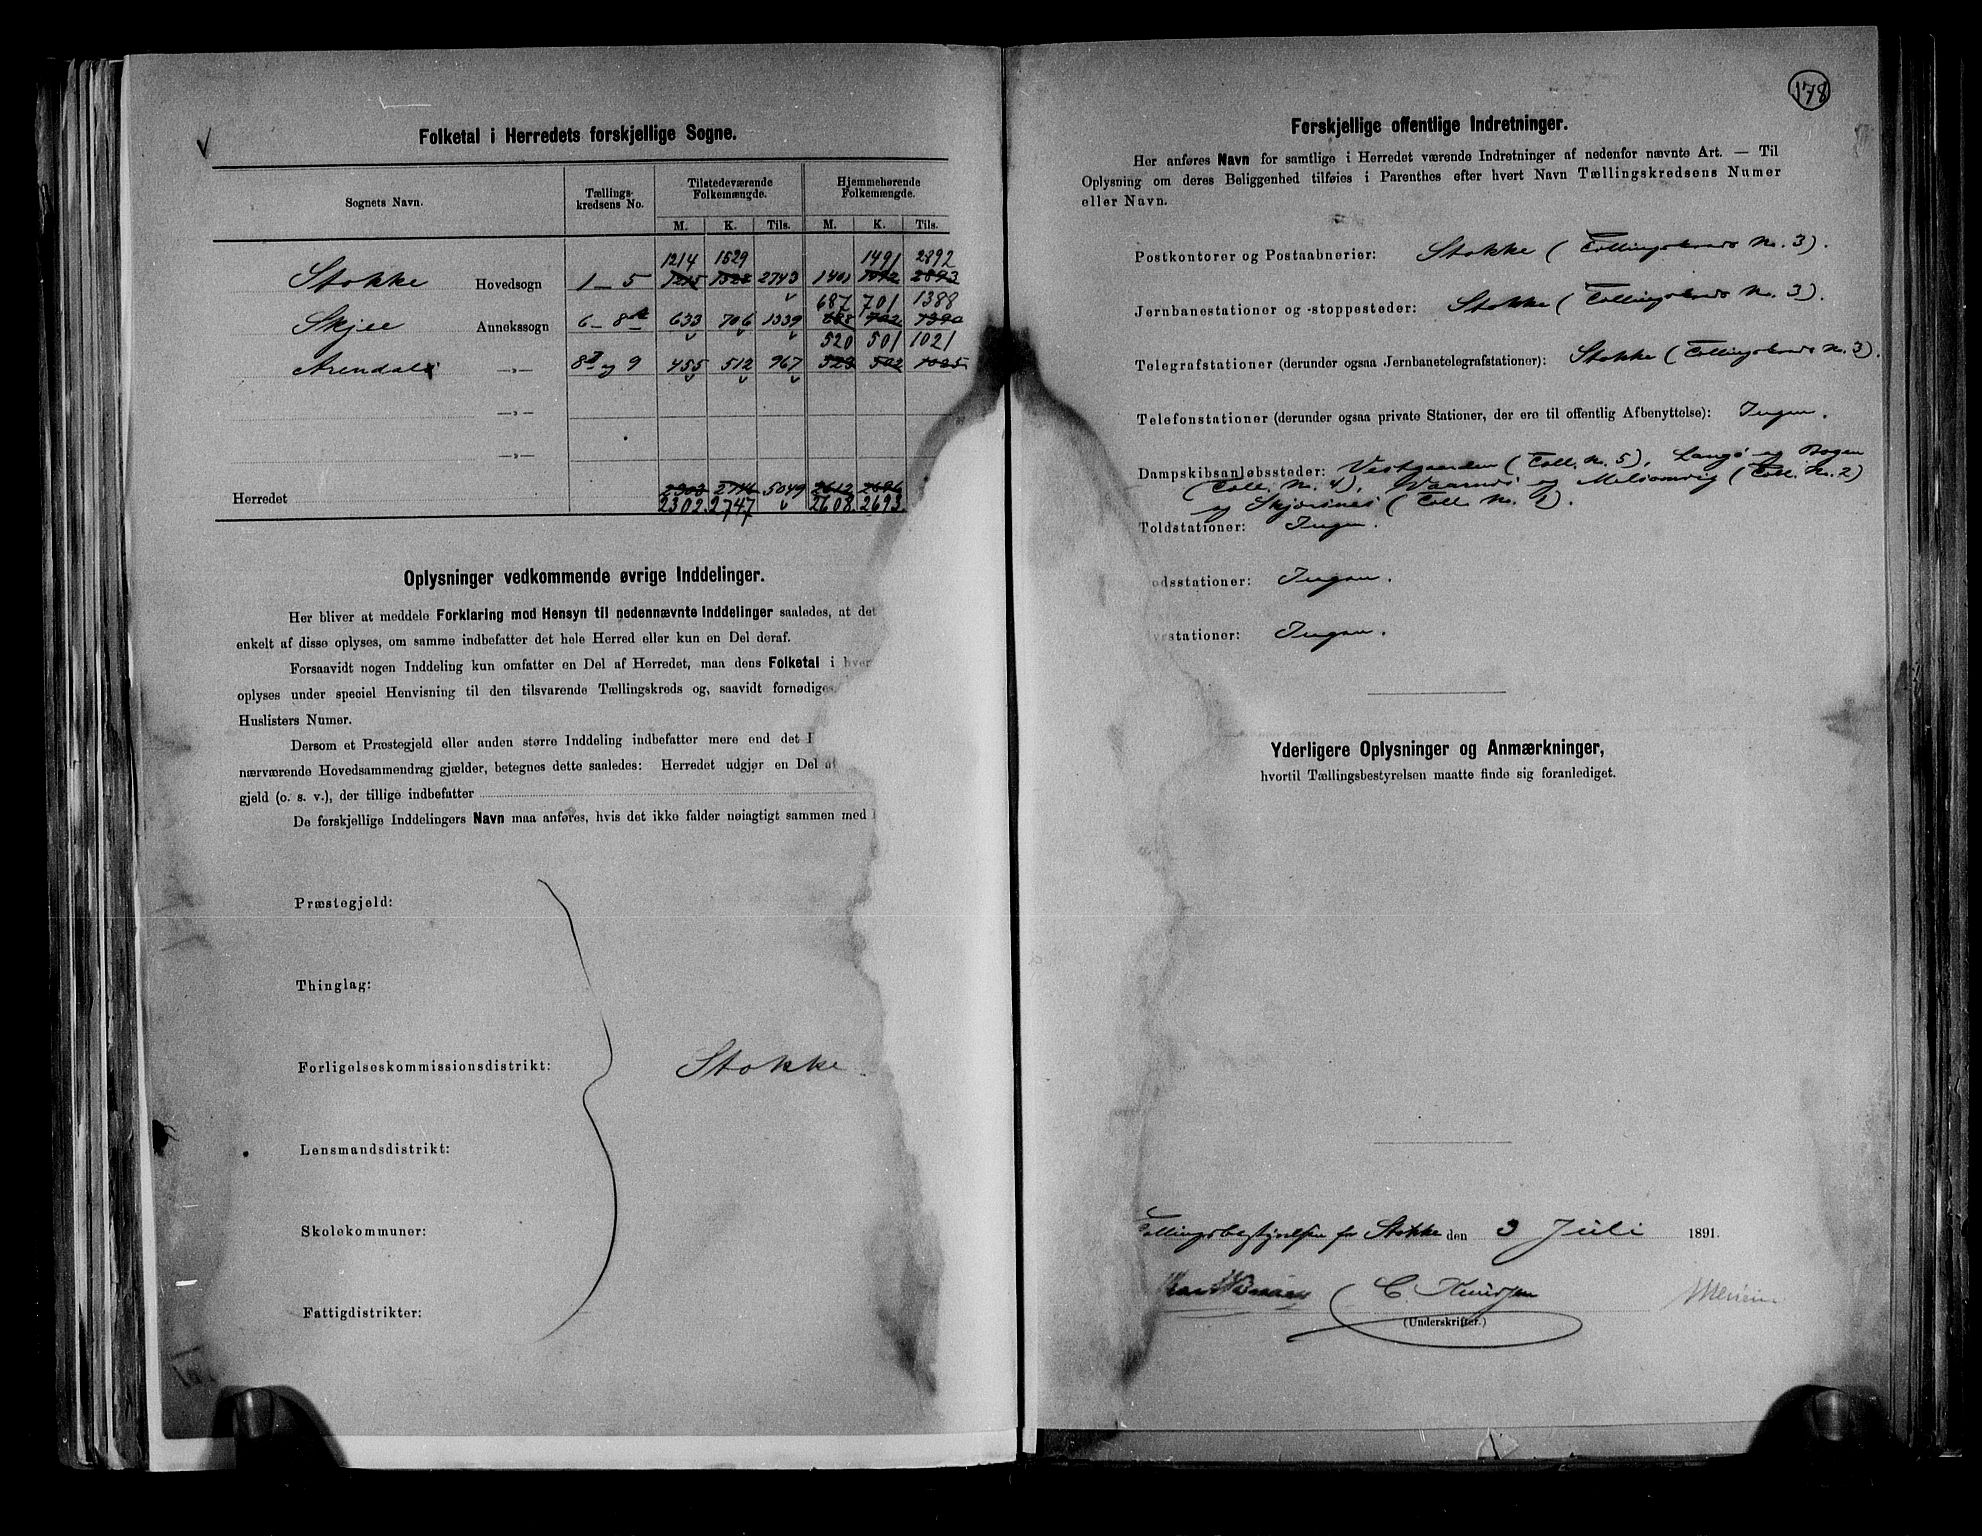 Folketal i Herredets forskjellige Sogne.
Sognets Navn.
Tællings-
kredsens No.
Tilstedeværende
Folkemængde.
Hjemmehørende
Folkemængde.
M. K. Tils. M. K. Tils.
1214 1529 1491 2892
Stokke Hovedsogn 1-5 1215 1528 2743 1401 1492 2893
687 701 1388
Skjee Annekssogn 6-8 633 706 1339 688 702 1390
520 501 1021
Arendal —„— 8 og 9 455 512 967 523 502 1025
—„—
—„—
2303 2746 5049 2612 2696
Herredet 2302. 2747 2608. 2693.
Oplysninger vedkommende øvrige Inddelinger.
Her bliver at meddele Forklaring med Hensyn til nedennævnte Inddelinger saaledes, at det
enkelt af disse oplyses, om samme indbefatter det hele Herred eller kun en Del deraf.
Forsaavidt nogen Inddeling kun omfatter en Del af Herredet, maa dens Folketal i hver
oplyses under speciel Henvisning til den tilsvarende Tællingskreds og, saavidt fornødiges
Huslisters Numer.
Dersom et Præstegjeld eller anden større Inddeling indbefatter mere end det
nærværende Hovedsammendrag gjælder, betegnes dette saaledes: Herredet udgjør en Del af
gjeld (o. s. v.), der tillige indbefatter
De forskjellige Inddelingers Navn maa anføres, hvis det ikke falder nøiagtigt sammen med
Præstegjeld:
Thinglag:
Forligelseskommissionsdistrikt: Stokke
Lensmandsdistrikt:
Skolekommuner:
Fattigdistrikter:
178
Forskjellige offentlige Indretninger.
Her anføres Navn for samtlige i Herredet værende Indretninger af nedenfor nævnte Art. — Til
Oplysning om deres Beliggenhed tilføies i Parenthes efter hvert Navn Tællingskredsens Numer
eller Navn.
Postkontorer og Postaabnerier: Stokke (Tællingskreds No. 3).
Jernbanestationer og -stoppesteder: Stokke (Tællingskreds No. 3).
Telegrafstationer (derunder ogsaa Jernbanetelegrafstationer): Stokke (Tællingskreds No. 3).
Telefonstationer (derunder ogsaa private Stationer, der ere til offentlig Afbenyttelse): Ingen.
Dampskibsanløbssteder: Vestgaarden (Tæll. No. 5), Langø og Bogen
(Tæll. No. 4), Vaarnæs og Melsomvig (Tæll. No. 2)
og Skjærsnes (Tæll. No. 1).
Toldstationer: Ingen.
odsstationer: Ingen.
stationer: Ingen.
Yderligere Oplysninger og Anmærkninger,
hvortil Tællingsbestyrelsen maatte finde sig foranlediget.
Tællingsbestyrelsen for Stokke den 3 Juli 1891.
C. Knudsen
(Underskrifter.)